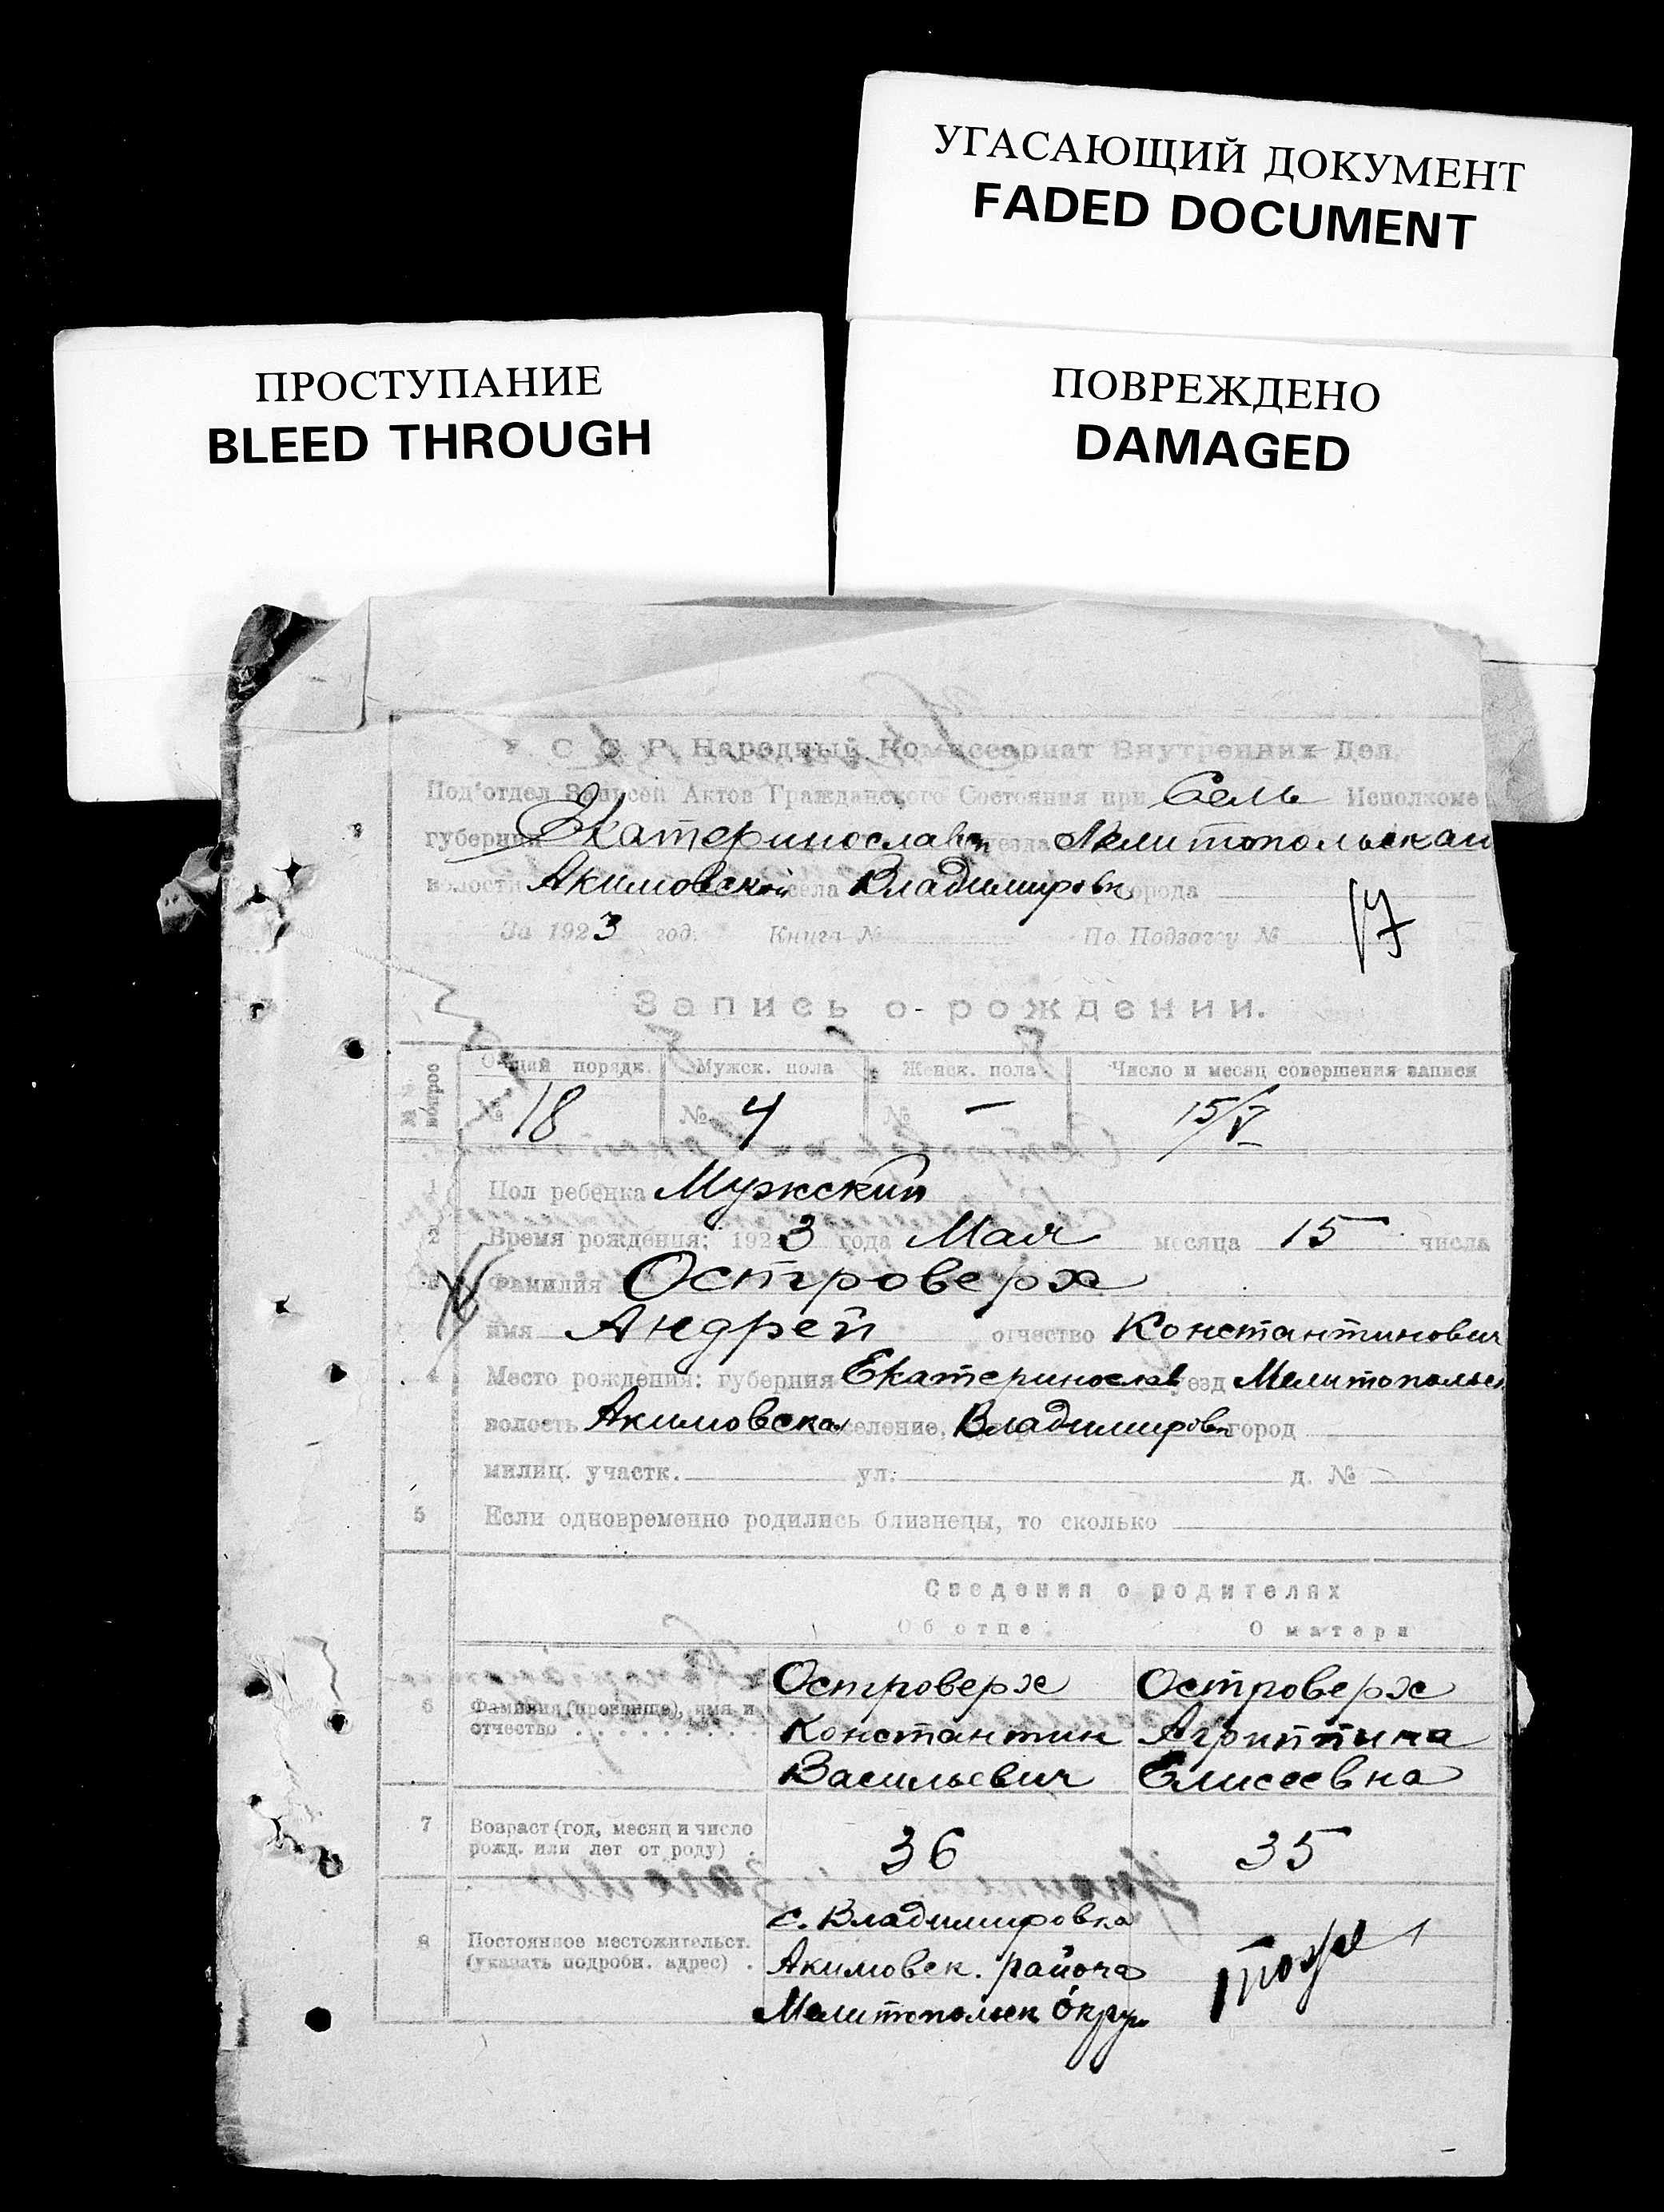 УГАСАЮЩИЙ ДОКУМЕНТ
FADED DOCUMENT
ПРОСТУПАНИЕ
BLEED THROUGH
ПОВРЕЖДЕНО
DAMAGED
У. С. С. Р. Народный Комиссариат Внутренних Дел.
Под'отдел Записей Актов Гражданского Состояния при Сель Исполкоме
губернии Екатеринослав уезда Мелитопольскаи
волости Акимовской села Владимировк города
За 1923 год. Книга № По Подзагсу №
17
Запись о рождении.
№№ вопрос
Общий порядк. Мужск. пола Женск. пола Число и месяц совершения записи
№ 18 № 4 № — 15/V
1 Пол ребенка Мужский
2 Время рождения: 1923 года Мая месяца 15 числа
3 Фамилия Островерх
имя Андрей отчество Константинович
4 Место рождения: губерния Екатеринослав уезд Мелитопольс
волость Акимовская селение, Владимировк город
милиц. участк. ул. д. №
5 Если одновременно родились близнецы, то сколько
Сведения о родителях
Об отце О матери
6 Фамилия (прозвище), имя и отчество
Островерх Островерх
Константин Агриппина
Васильевич Елисеевна
7 Возраст (год, месяц и число рожд. или лет от роду) 36 35
8 Постоянное местожительст. (указать подробн. адрес)
с. Владимировка
Акимовск. района тоже
Мелитопольск округ